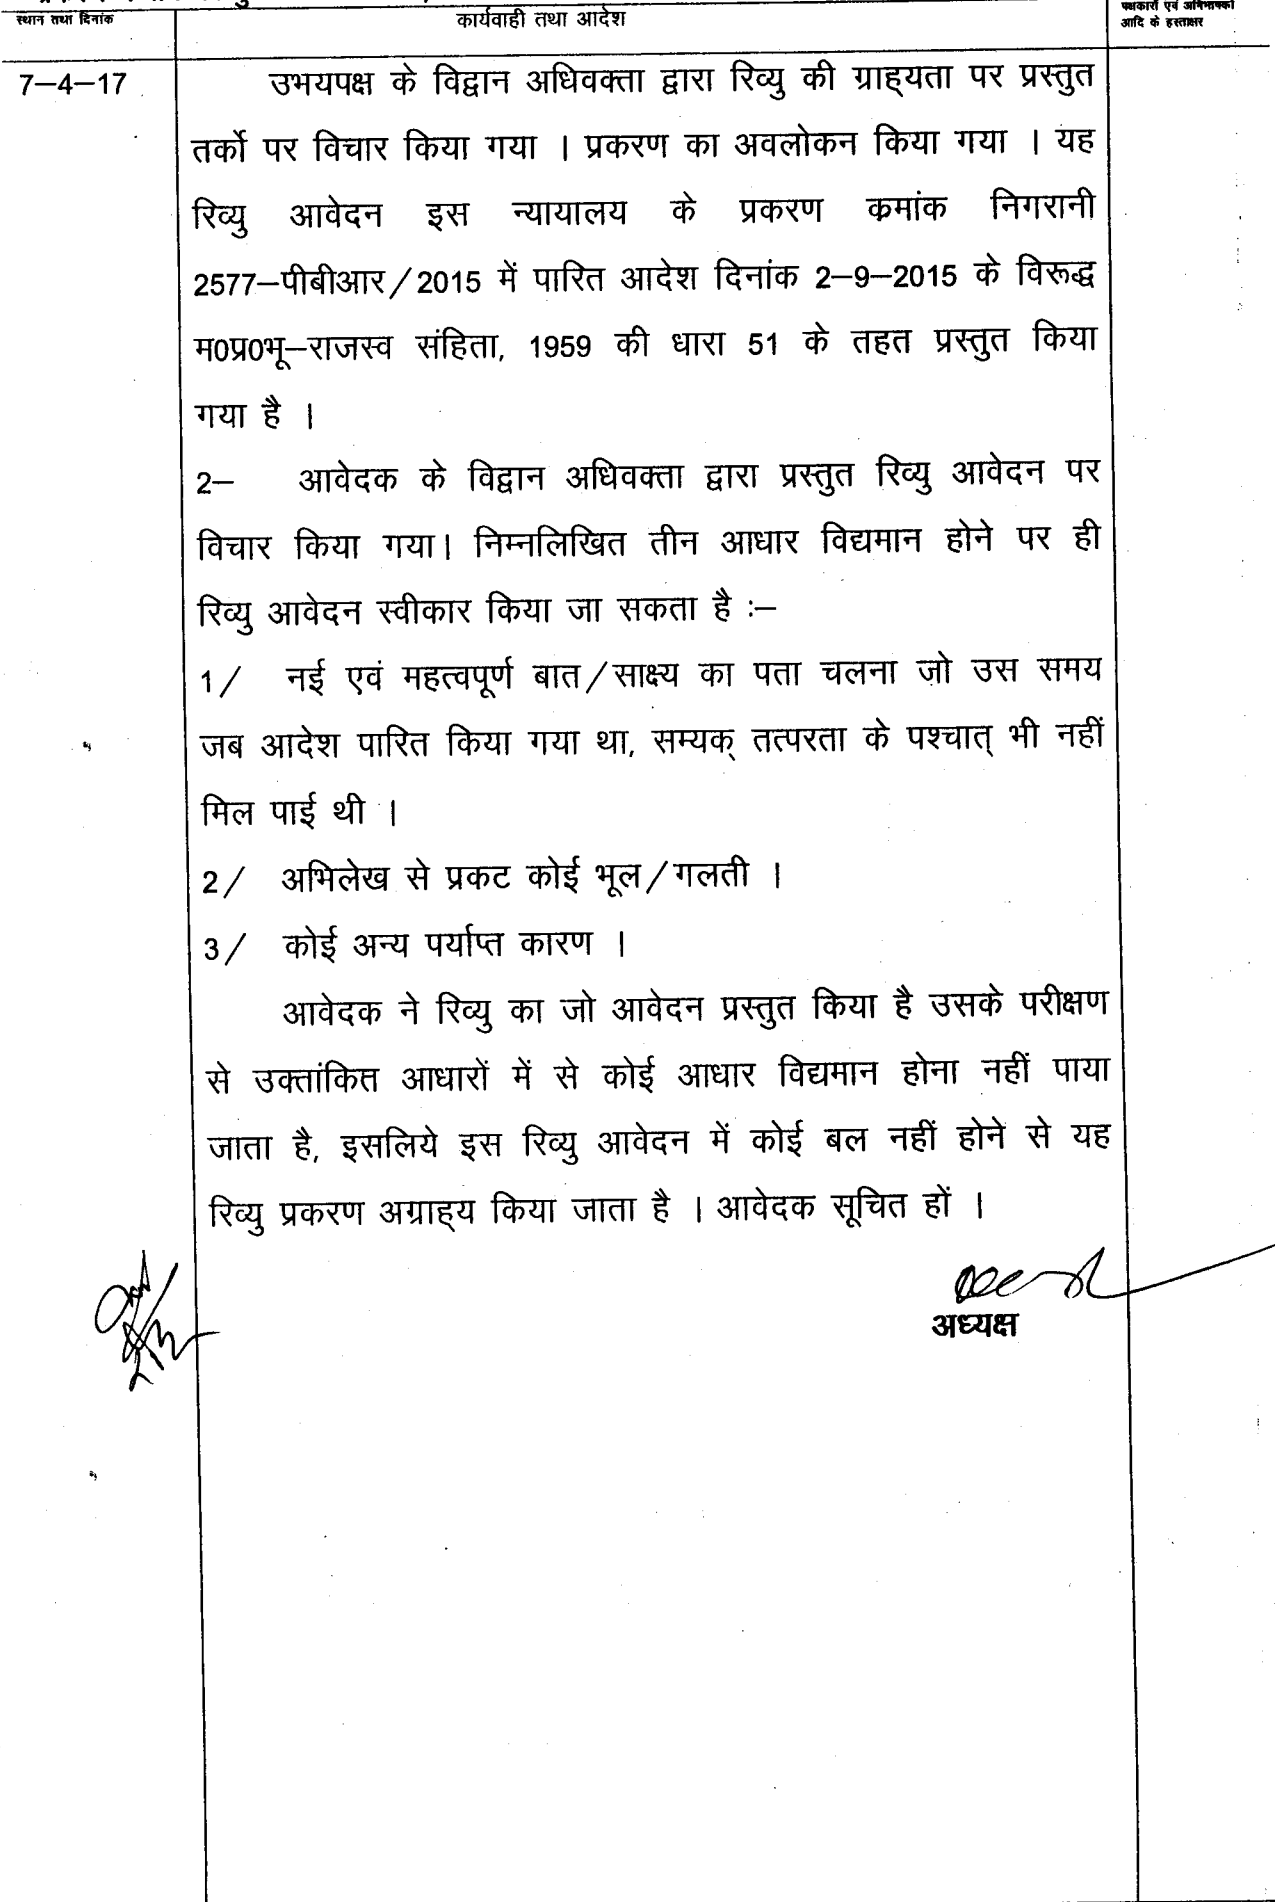 स्थान तथा दिनांक
कार्यवाही तथा आदेश
पक्षकारों एवं अभिभाषकों
आदि के हस्ताक्षर
7–4–17
उभयपक्ष के विद्वान अधिवक्ता द्वारा रिव्यु की ग्राह्यता पर प्रस्तुत
तर्को पर विचार किया गया । प्रकरण का अवलोकन किया गया । यह
रिव्यु आवेदन इस न्यायालय के प्रकरण क्रमांक निगरानी
2577–पीबीआर/2015 में पारित आदेश दिनांक 2–9–2015 के विरूद्ध
म0प्र0भू–राजस्व संहिता, 1959 की धारा 51 के तहत प्रस्तुत किया
गया है ।
2– आवेदक के विद्वान अधिवक्ता द्वारा प्रस्तुत रिव्यु आवेदन पर
विचार किया गया। निम्नलिखित तीन आधार विद्यमान होने पर ही
रिव्यु आवेदन स्वीकार किया जा सकता है :–
1/ नई एवं महत्वपूर्ण बात/साक्ष्य का पता चलना जो उस समय
जब आदेश पारित किया गया था, सम्यक् तत्परता के पश्चात् भी नहीं
मिल पाई थी ।
2/ अभिलेख से प्रकट कोई भूल/गलती ।
3/ कोई अन्य पर्याप्त कारण ।
आवेदक ने रिव्यु का जो आवेदन प्रस्तुत किया है उसके परीक्षण
से उक्तांकित आधारों में से कोई आधार विद्यमान होना नहीं पाया
जाता है, इसलिये इस रिव्यु आवेदन में कोई बल नहीं होने से यह
रिव्यु प्रकरण अग्राह्य किया जाता है । आवेदक सूचित हों ।
अध्यक्ष